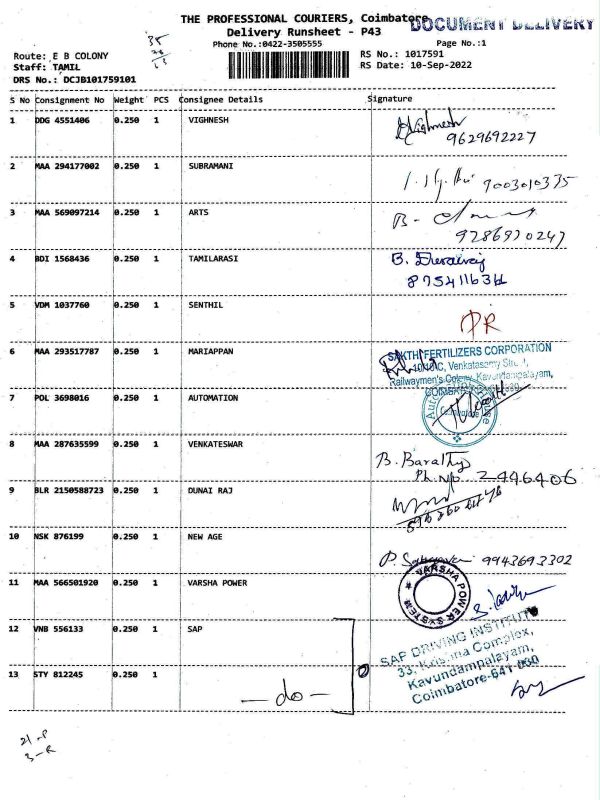 THE PROFESSIONAL COURIERS, Coimbatore
DOCUMENT DELIVERY
Delivery Runsheet - P43
Phone No.:0422-3505555
Page No.:1
35
Route: E B COLONY
RS No.: 1017591
Staff: TAMIL
RS Date: 10-Sep-2022
DRS No.: DCJB101759101
S No Consignment No Weight PCS Consignee Details Signature
1 DDG 4551406 0.250 1 VIGHNESH Vighnesh
9629692227
2 MAA 294177002 0.250 1 SUBRAMANI 9003010375
3 MAA 569097214 0.250 1 ARTS B-
9286970247
4 BDI 1568436 0.250 1 TAMILARASI B. Durairaj
8754116311
5 VDM 1037760 0.250 1 SENTHIL PR
6 MAA 293517787 0.250 1 MARIAPPAN SAKTHI FERTILIZERS CORPORATION
10/10C, Venkatasamy Street,
Railwaymen's Colony, Kavundampalayam,
COIMBATORE
7 POL 3698016 0.250 1 AUTOMATION Coimbatore
8 MAA 287635599 0.250 1 VENKATESWAR B. Barathy
Ph. No. 2446406
9 BLR 2150588723 0.250 1 DUNAI RAJ
10 NSK 876199 0.250 1 NEW AGE P. 9943693302
11 MAA 566501920 0.250 1 VARSHA POWER VARSHA POWER SYSTEM
12 VNB 556133 0.250 1 SAP SAP DRIVING INSTITUTE
33, Krishna Complex,
Kavundampalayam,
Coimbatore-641 030
13 STY 812245 0.250 1 - do -
21-P
3-R